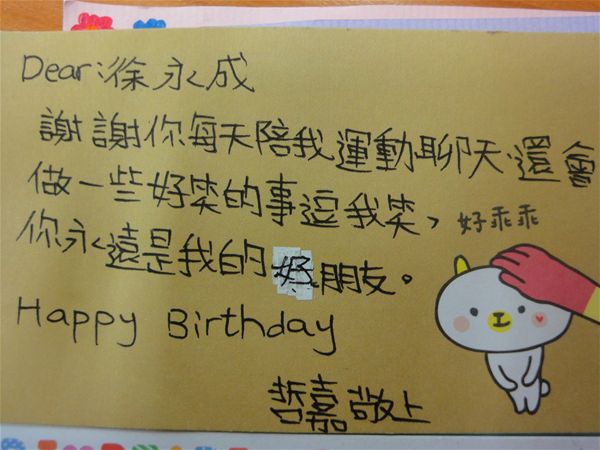 Dear:徐永成
謝謝你每天陪我運動聊天,還會
做一些好笑的事逗我笑,
好乖乖
你永遠是我的好朋友。
Happy Birthday
哲嘉敬上